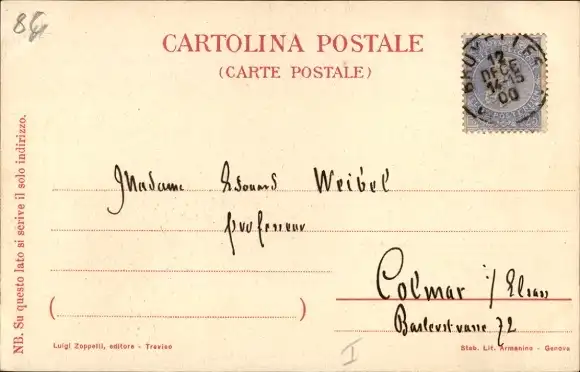 CARTOLINA POSTALE
(CARTE POSTALE)
BRUXELLES
12
DEC
00
NB. Su questo lato si scrive il solo indirizzo.
Madame Edouard Weibel
professeur
Colmar i/Elsass
Baslerstrasse 72
( )
Luigi Zoppelli, editore - Treviso
Stab. Lit. Armanino - Genova
I